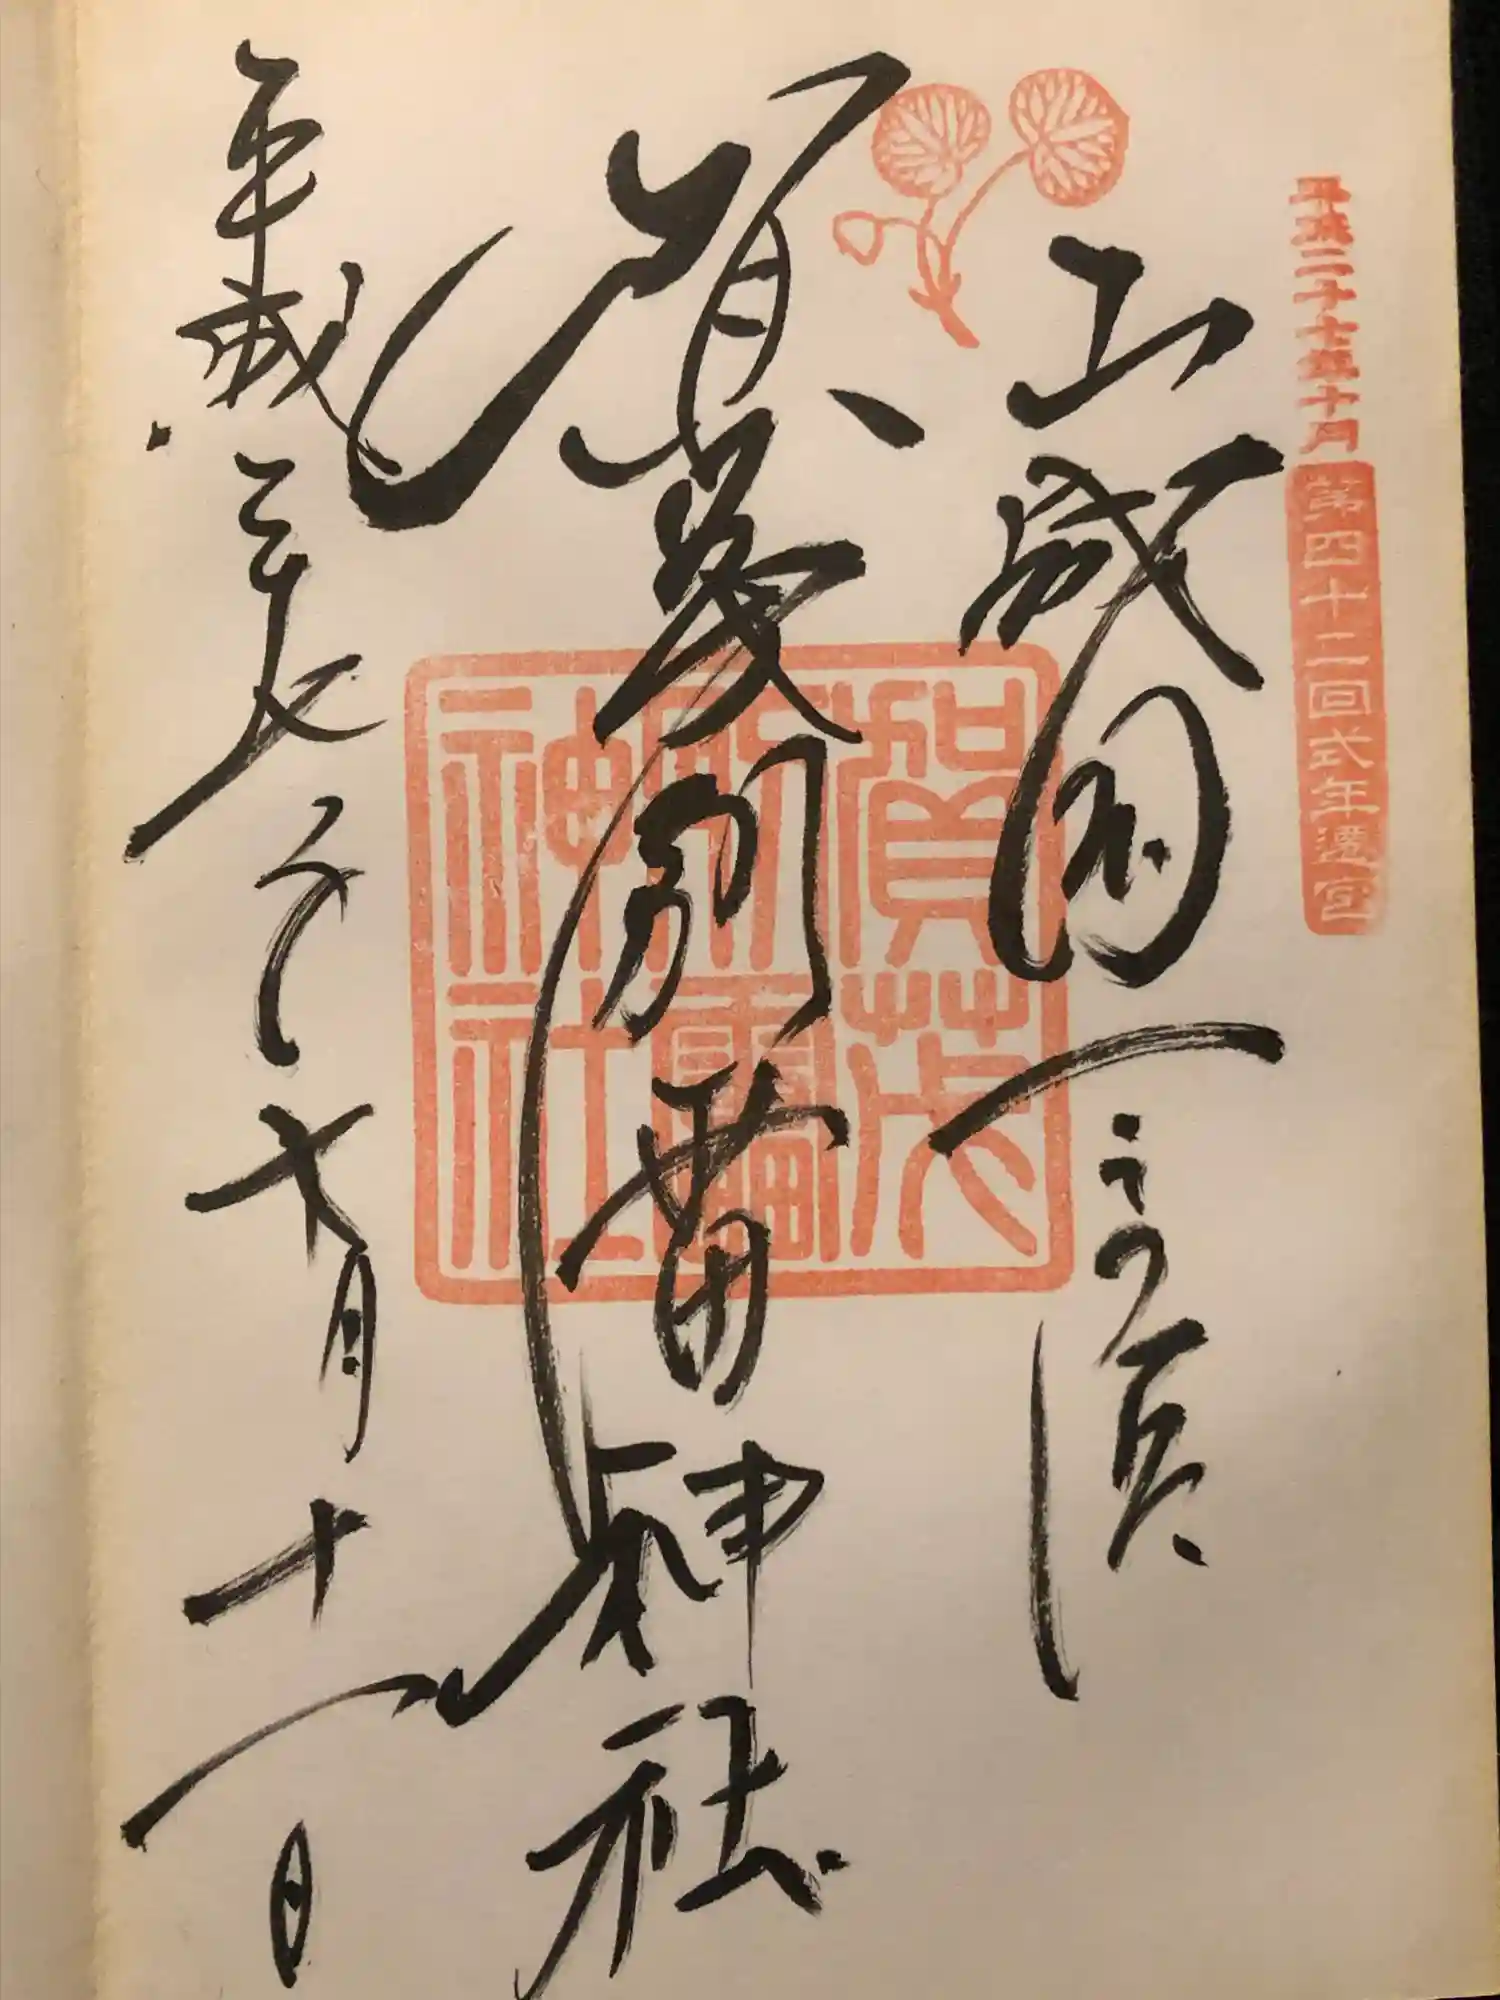 平成二十七年十月
第四十二回式年遷宮
山城國一之宮
賀茂別雷神社
平成二七年七月十一日
賀茂
別雷
神社